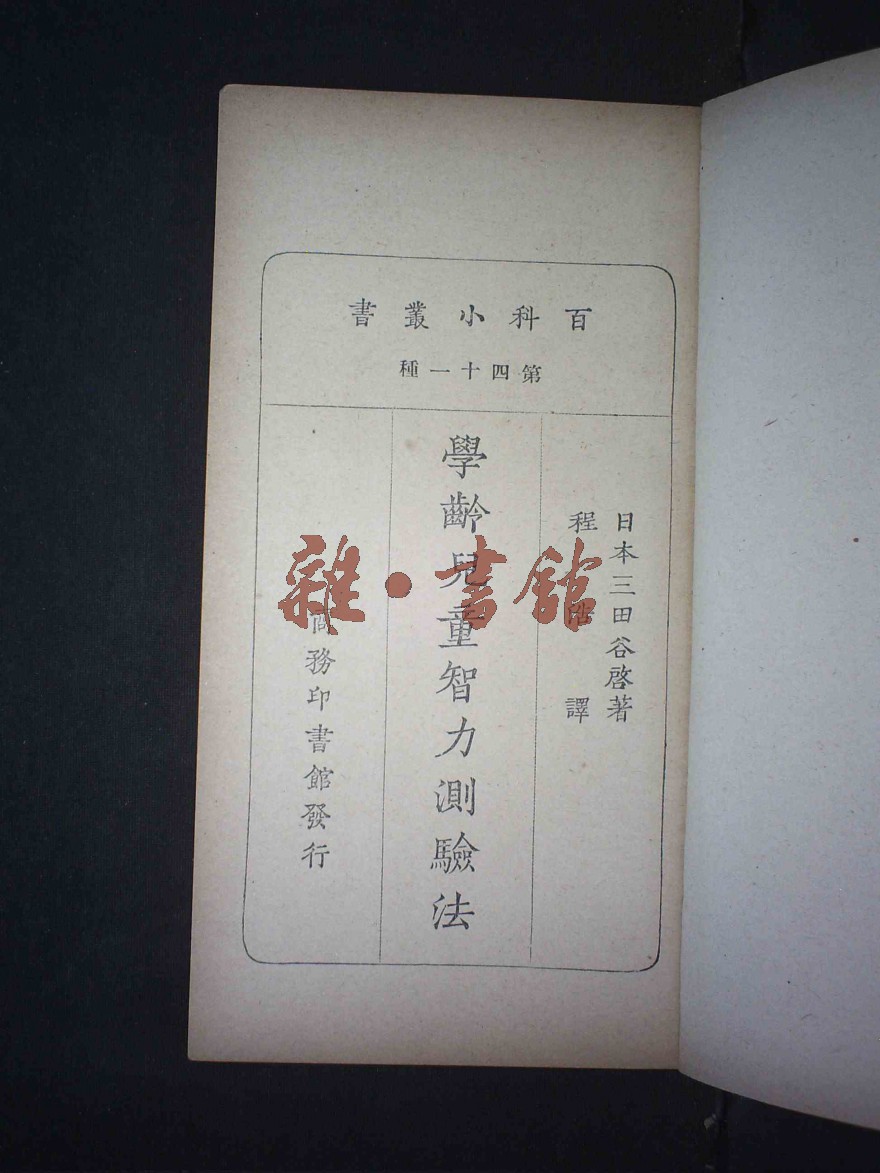 百科小叢書
第四十一種
日本三田谷啓著
程浩譯
學齡兒童智力測驗法
商務印書館發行
雜·書館